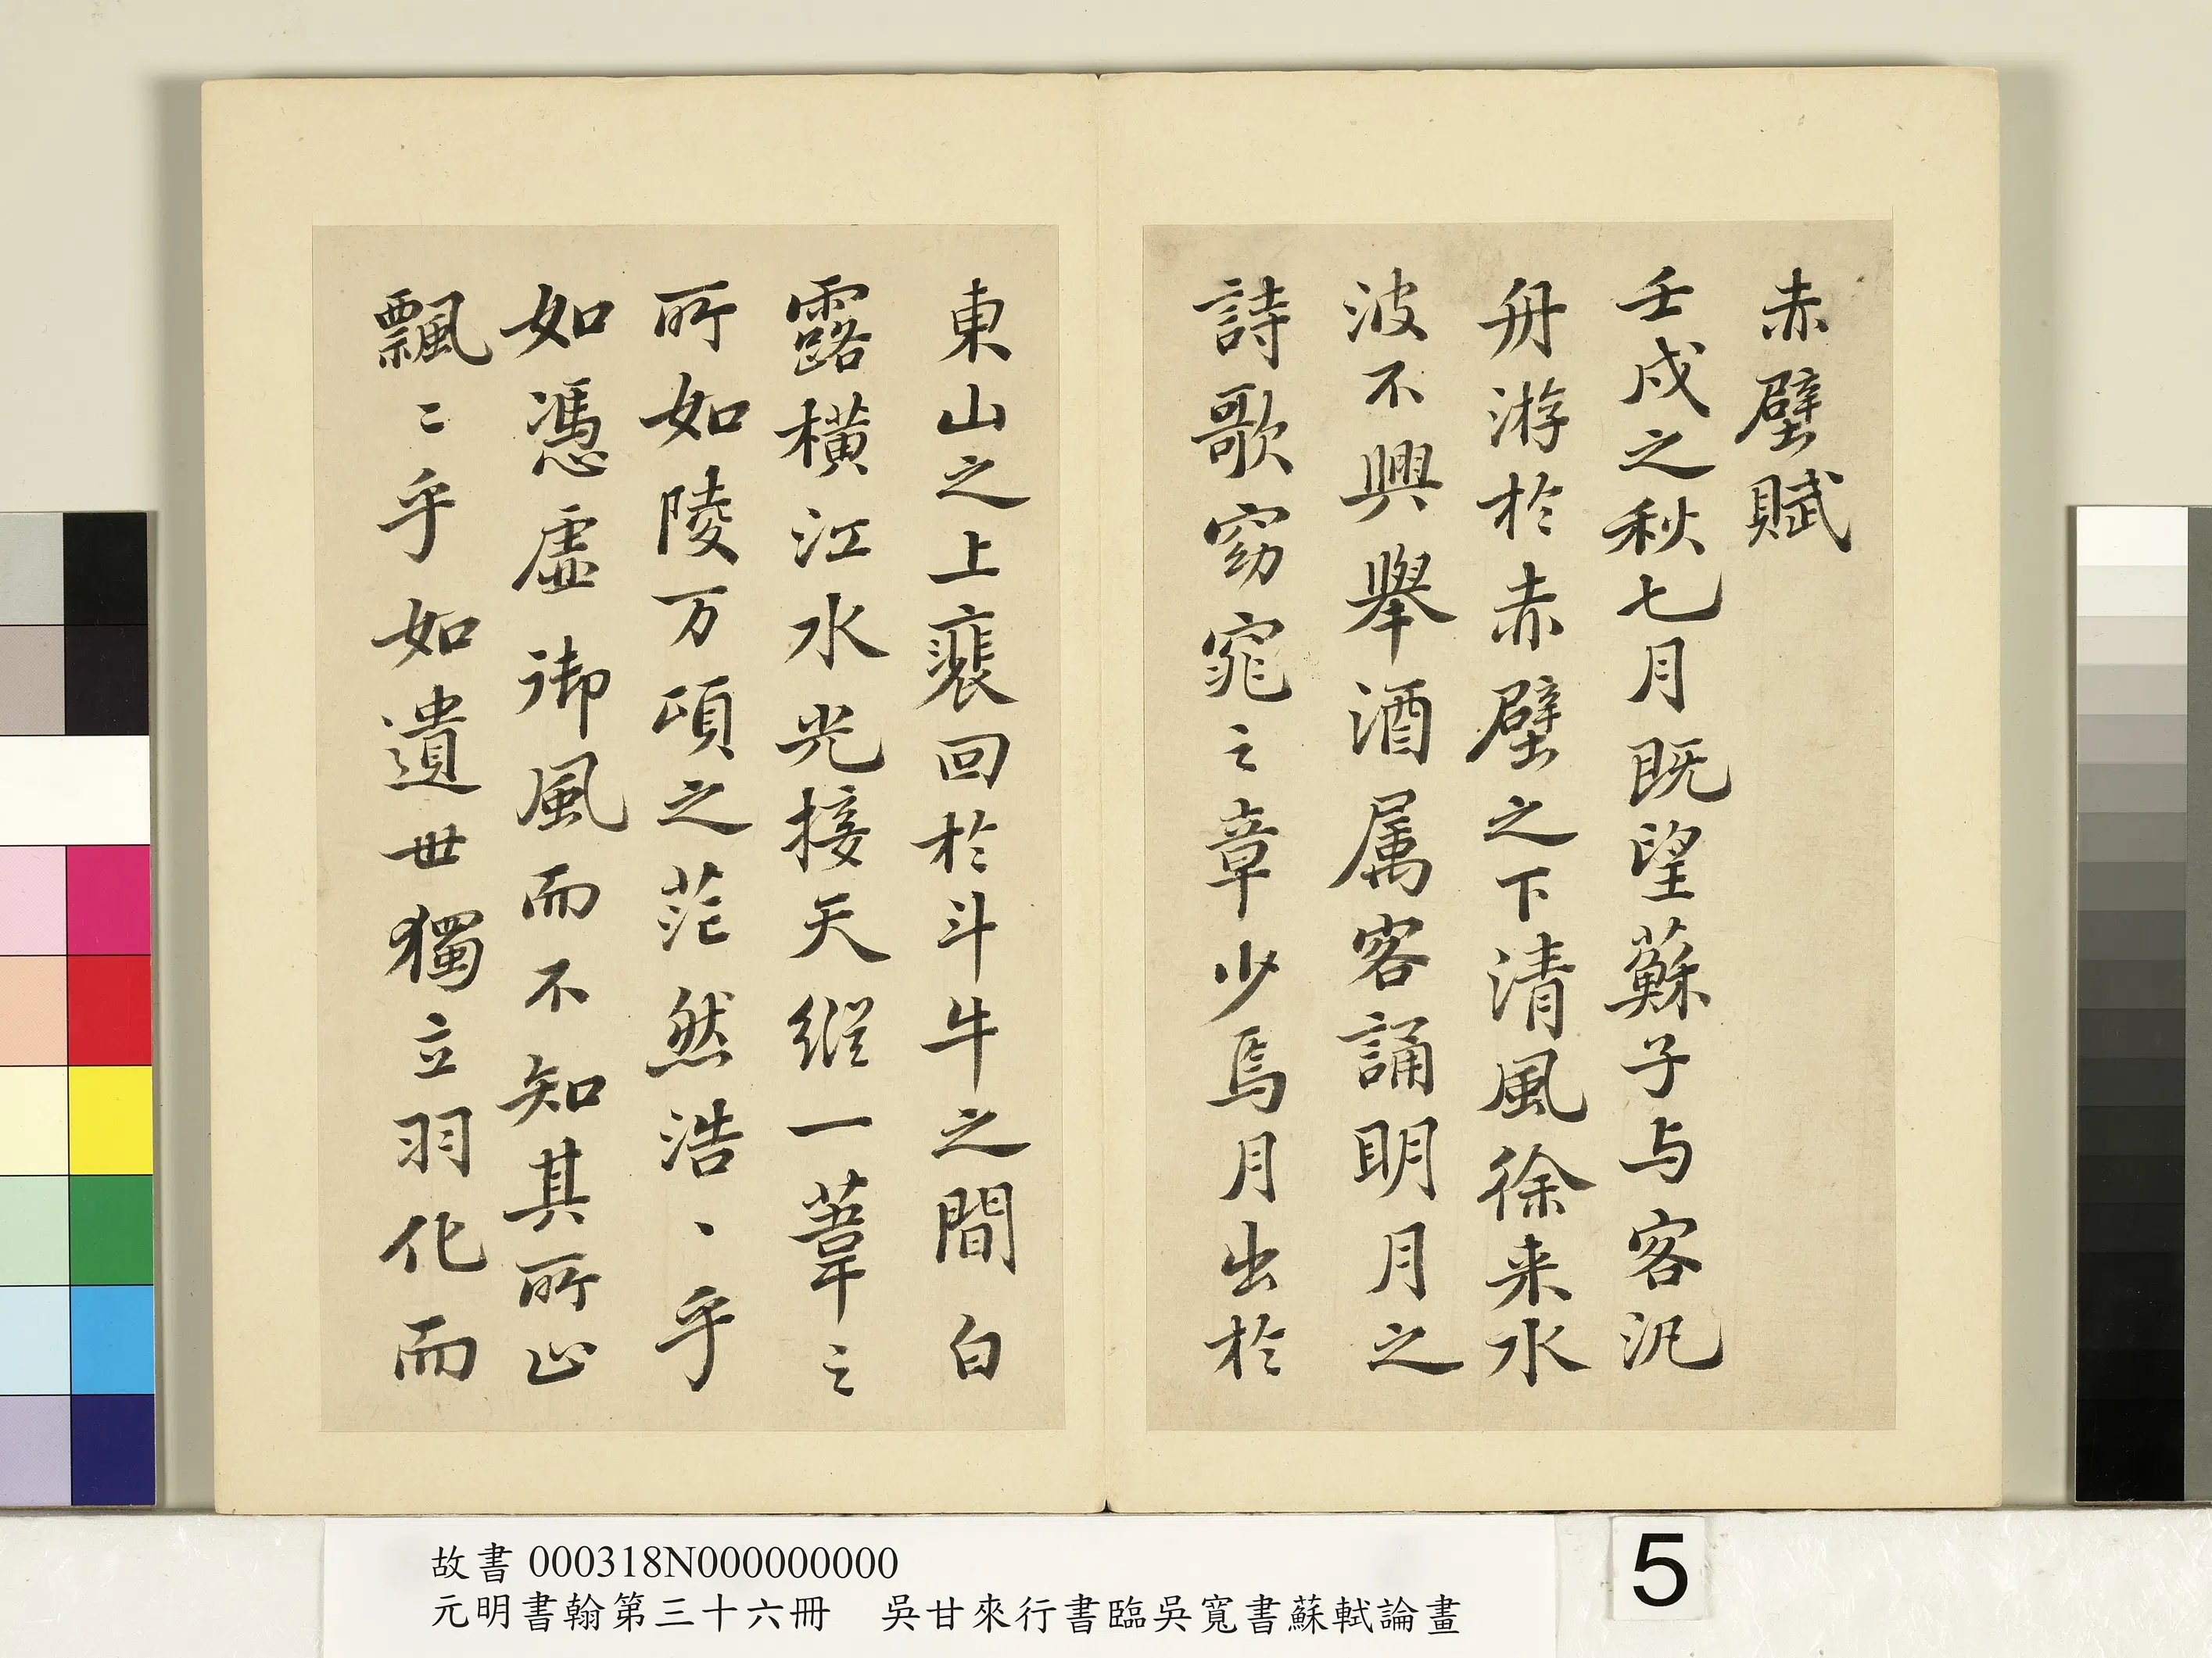 赤壁賦
壬戌之秋七月既望蘇子与客汎
舟游於赤壁之下清風徐来水
波不興舉酒属客誦明月之
詩歌窈窕之章少焉月出於
東山之上裴回於斗牛之間白
露橫江水光接天縱一葦之
所如陵万頃之茫然浩〻乎
如馮虛御風而不知其所止
飄〻乎如遺世獨立羽化而
故書 000318N000000000
元明書翰第三十六冊 吳甘來行書臨吳寬書蘇軾論畫
5